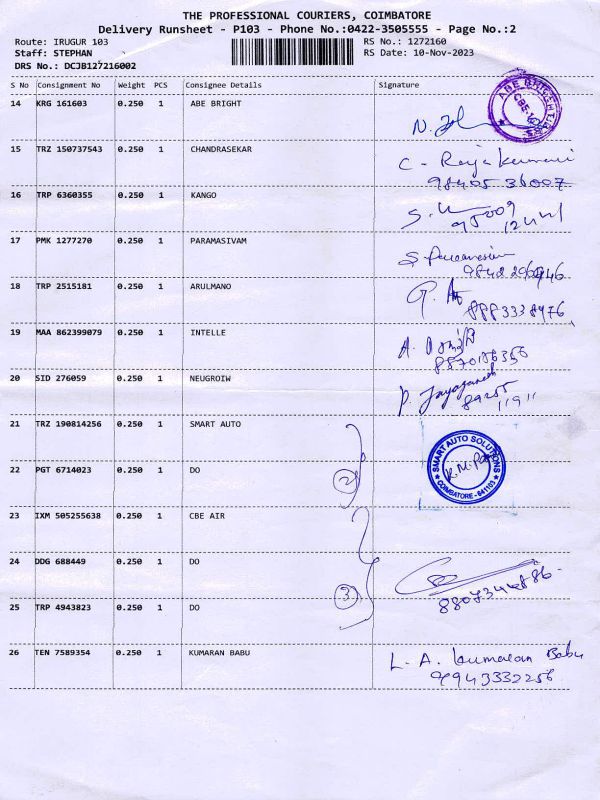 THE PROFESSIONAL COURIERS, COIMBATORE
Delivery Runsheet - P103 - Phone No.:0422-3505555 - Page No.:2
Route: IRUGUR 103 RS No.: 1272160
Staff: STEPHAN RS Date: 10-Nov-2023
DRS No.: DCJB127216002
S No Consignment No Weight PCS Consignee Details Signature
14 KRG 161603 0.250 1 ABE BRIGHT
15 TRZ 150737543 0.250 1 CHANDRASEKAR C - Rajakumari
98405 36007
16 TRP 6360355 0.250 1 KANGO
95009
12441
17 PMK 1277270 0.250 1 PARAMASIVAM
18 TRP 2515181 0.250 1 ARULMANO
8883338976
19 MAA 862399079 0.250 1 INTELLE
8870186356
20 SID 276059 0.250 1 NEUGROIW
89255
11911
21 TRZ 190814256 0.250 1 SMART AUTO
SMART AUTO SOLUTIONS
COIMBATORE - 641103
22 PGT 6714023 0.250 1 DO 2
23 IXM 505255638 0.250 1 CBE AIR
24 DDG 688449 0.250 1 DO
25 TRP 4943823 0.250 1 DO 3
26 TEN 7589354 0.250 1 KUMARAN BABU L. A. kumaran Babu
99943332256